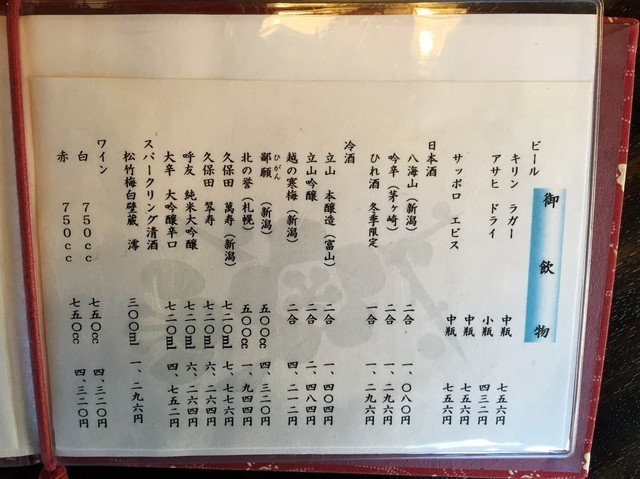 御飲物
ビール
キリン ラガー 中瓶 七五六円
アサヒ ドライ 小瓶 四三二円
中瓶 七五六円
サッポロ エビス 中瓶 七五六円
日本酒
八海山（新潟） 二合 一、〇八〇円
吟辛（茅ヶ崎） 二合 一、二九六円
ひれ酒 冬季限定 一合 一、二九六円
冷酒
立山 本醸造（富山） 二合 一、四〇四円
立山吟醸 二合 二、四八四円
越の寒梅（新潟） 二合 四、二一二円
ひがん
鄙願（新潟） 五〇〇cc 四、三二〇円
北の誉（札幌） 五〇〇cc 一、九四四円
久保田 萬寿（新潟） 七二〇ml 七、七七六円
久保田 翠寿 七二〇ml 六、二六四円
呼友 純米大吟醸 七二〇ml 六、二六四円
大辛 大吟醸辛口 七二〇ml 四、七五二円
スパークリング清酒
松竹梅白壁蔵 澪 三〇〇ml 一、二九六円
ワイン
白 750cc 七五〇cc 四、三二〇円
赤 750cc 七五〇cc 四、三二〇円